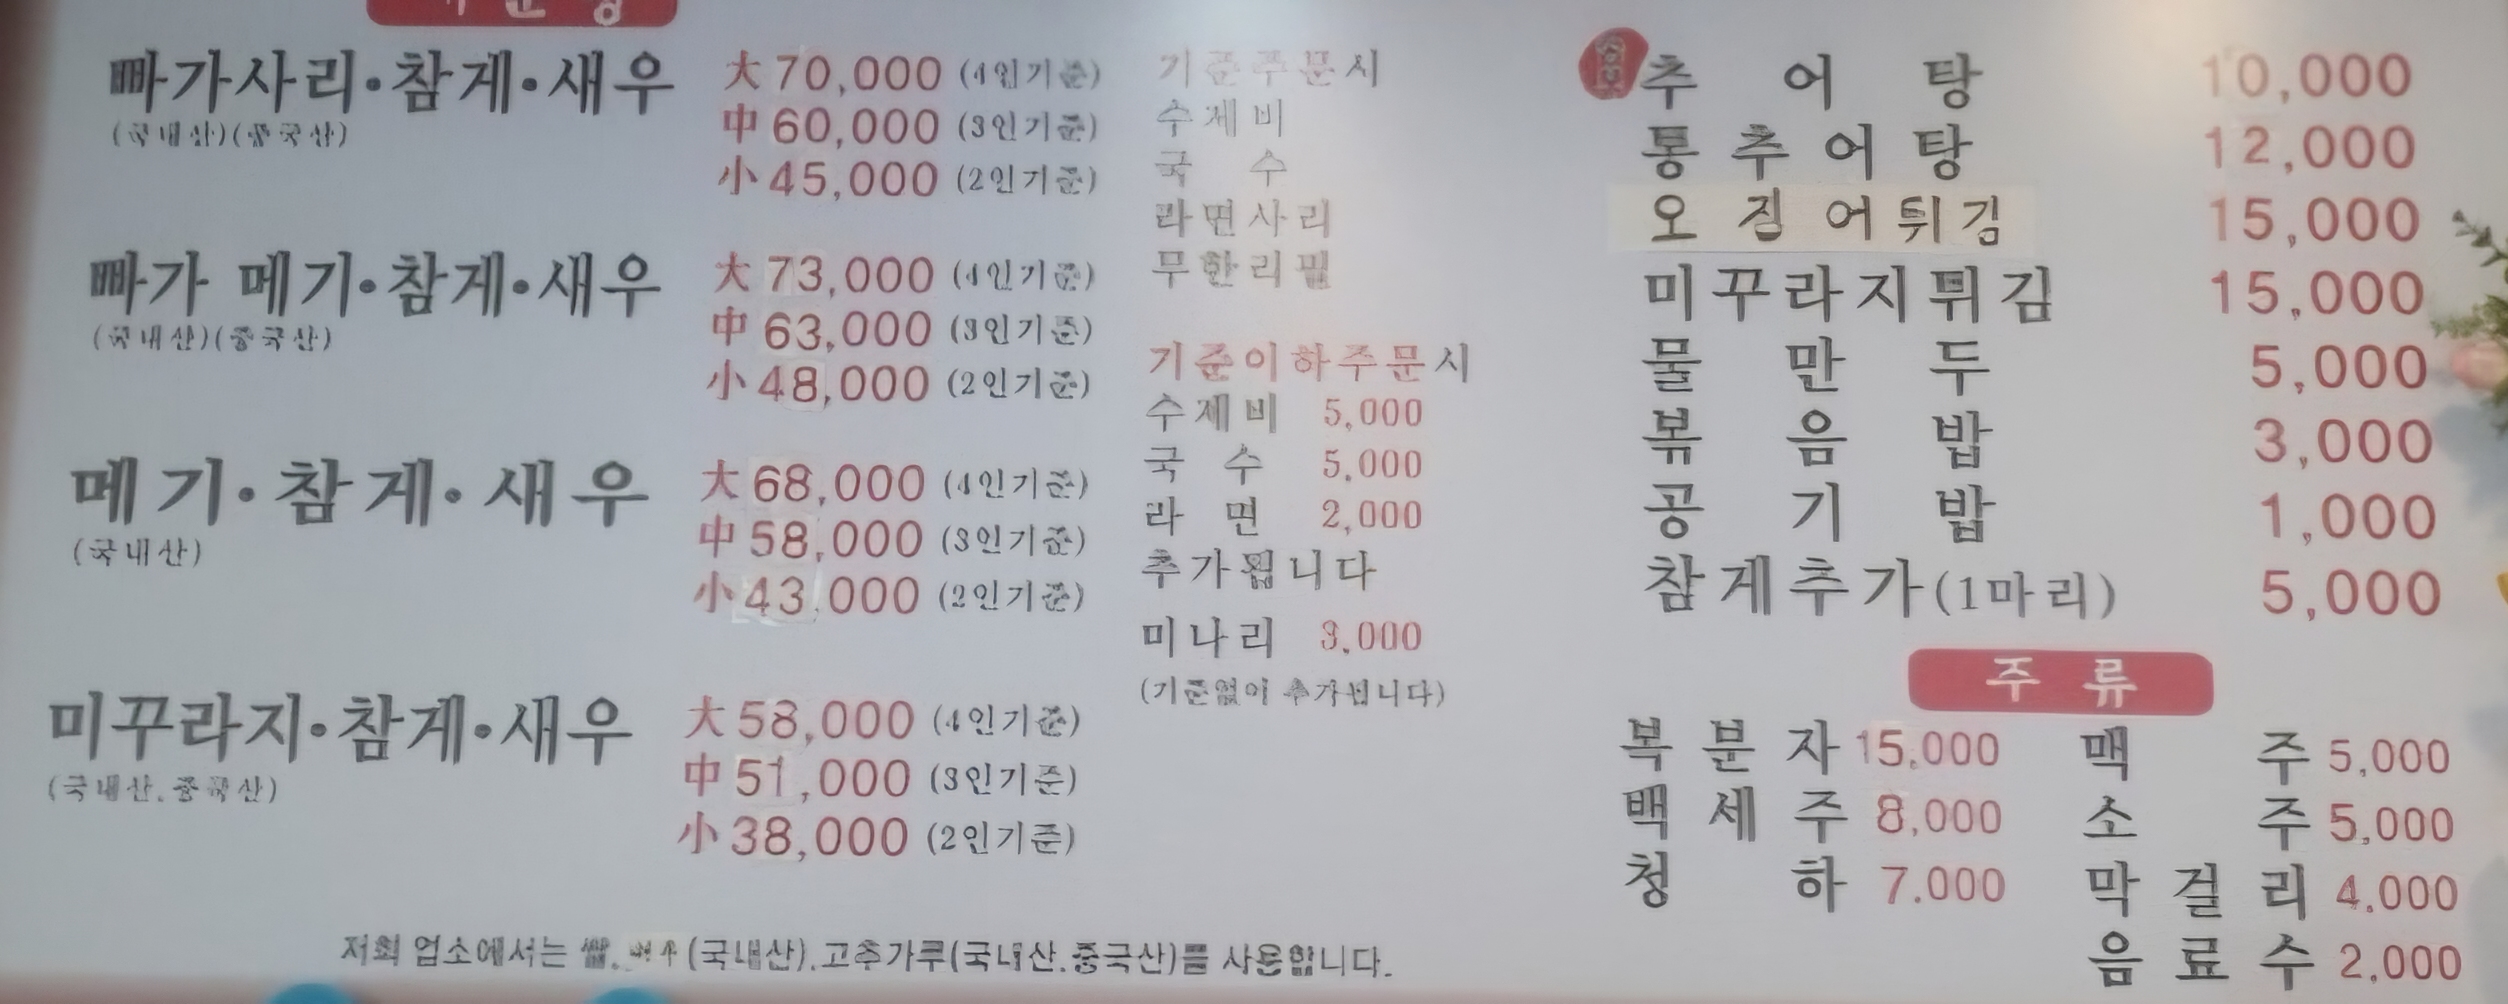 빠가사리·참게·새우 大 70,000 (4인기준)
(국내산)(중국산) 中 60,000 (3인기준)
小 45,000 (2인기준)
빠가 메기·참게·새우 大 73,000 (4인기준)
(국내산)(중국산) 中 63,000 (3인기준)
小 48,000 (2인기준)
메기·참게·새우 大 68,000 (4인기준)
(국내산) 中 58,000 (3인기준)
小 43,000 (2인기준)
미꾸라지·참게·새우 大 58,000 (4인기준)
(국내산.중국산) 中 51,000 (3인기준)
小 38,000 (2인기준)
기준주문시
수제비
국수
라면사리
무한리필
기준이하주문시
수제비 5,000
국수 5,000
라면 2,000
추가됩니다
미나리 3,000
(기준없이 추가됩니다)
추어탕 10,000
통추어탕 12,000
오징어튀김 15,000
미꾸라지튀김 15,000
물만두 5,000
볶음밥 3,000
공기밥 1,000
참게추가(1마리) 5,000
주류
복분자 15,000 맥주 5,000
백세주 8,000 소주 5,000
청하 7.000 막걸리 4.000
음료수 2,000
저희 업소에서는 쌀. (국내산).고추가루(국내산.중국산)를 사용합니다.